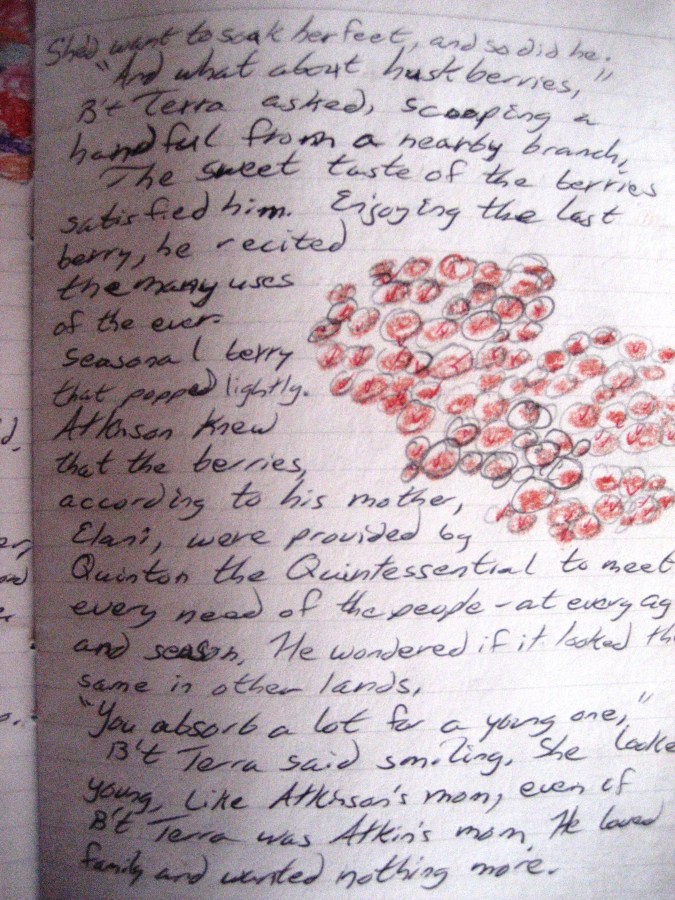 She'd want to soak her feet, and so did he.
"And what about huskberries,"
B't Terra asked, scooping a
handful from a nearby branch,
The sweet taste of the berries
satisfied him. Enjoying the last
berry, he recited
the many uses
of the ever-
seasonal berry
that popped lightly.
Atkinson knew
that the berries,
according to his mother,
Elani, were provided by
Quinton the Quintessential to meet
every need of the people - at every ag
and season. He wondered if it looked th
same in other lands.
"You absorb a lot for a young one,"
B't Terra said smiling. She looke
young, like Atkinson's mom, even if
B't Terra was Atkin's mom. He loved
family and wanted nothing more.